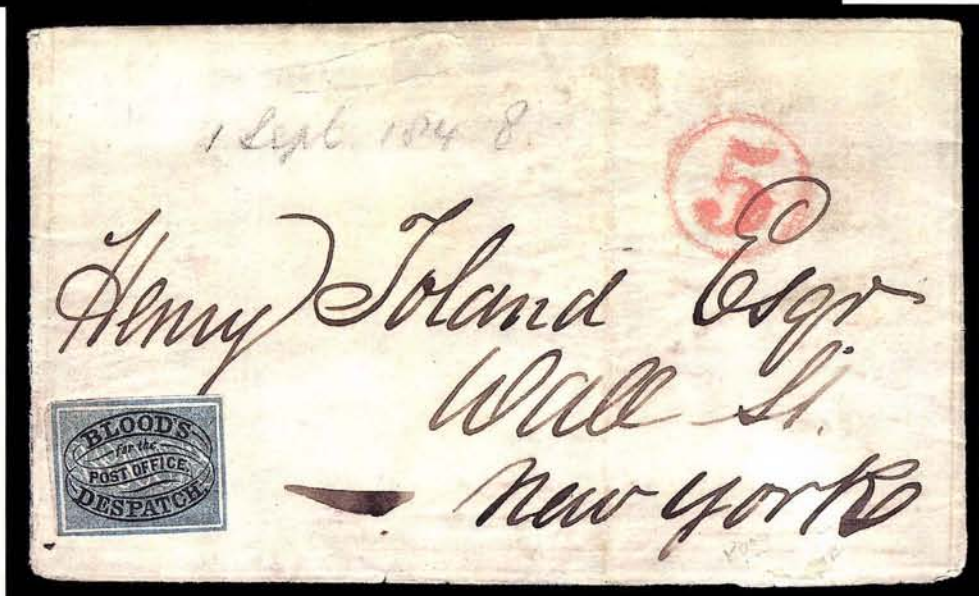 1 Sept. 1848
5
Henry Toland Esqr
Wall St.
New York
BLOOD'S
for the
POST OFFICE.
DESPATCH.